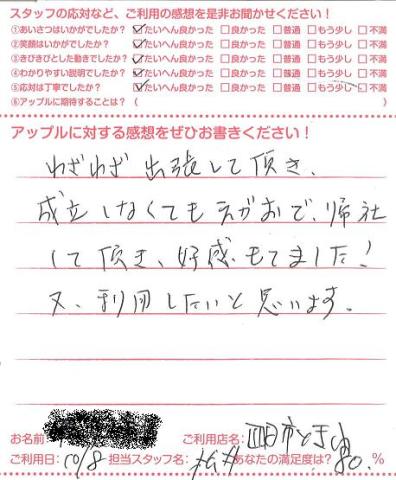 スタッフの応対など、ご利用の感想を是非お聞かせください！
①あいさつはいかがでしたか？ ☑たいへん良かった □良かった □普通 □もう少し □不満
②笑顔はいかがでしたか？ ☑たいへん良かった □良かった □普通 □もう少し □不満
③きびきびとした動きでしたか？ ☑たいへん良かった □良かった □普通 □もう少し □不満
④わかりやすい説明でしたか？ ☑たいへん良かった □良かった □普通 □もう少し □不満
⑤応対は丁寧でしたか？ ☑たいへん良かった □良かった □普通 □もう少し □不満
⑥アップルに期待することは？（ ）
アップルに対する感想をぜひお書きください！
わざわざ出張して頂き、
成立しなくてもえがおで、帰社
して頂き、好感もてました！
又、利用したいと思います。
お名前 ご利用店名: 四日市ときわ
ご利用日: 10/8 担当スタッフ名: 松井 あなたの満足度は? 80.%